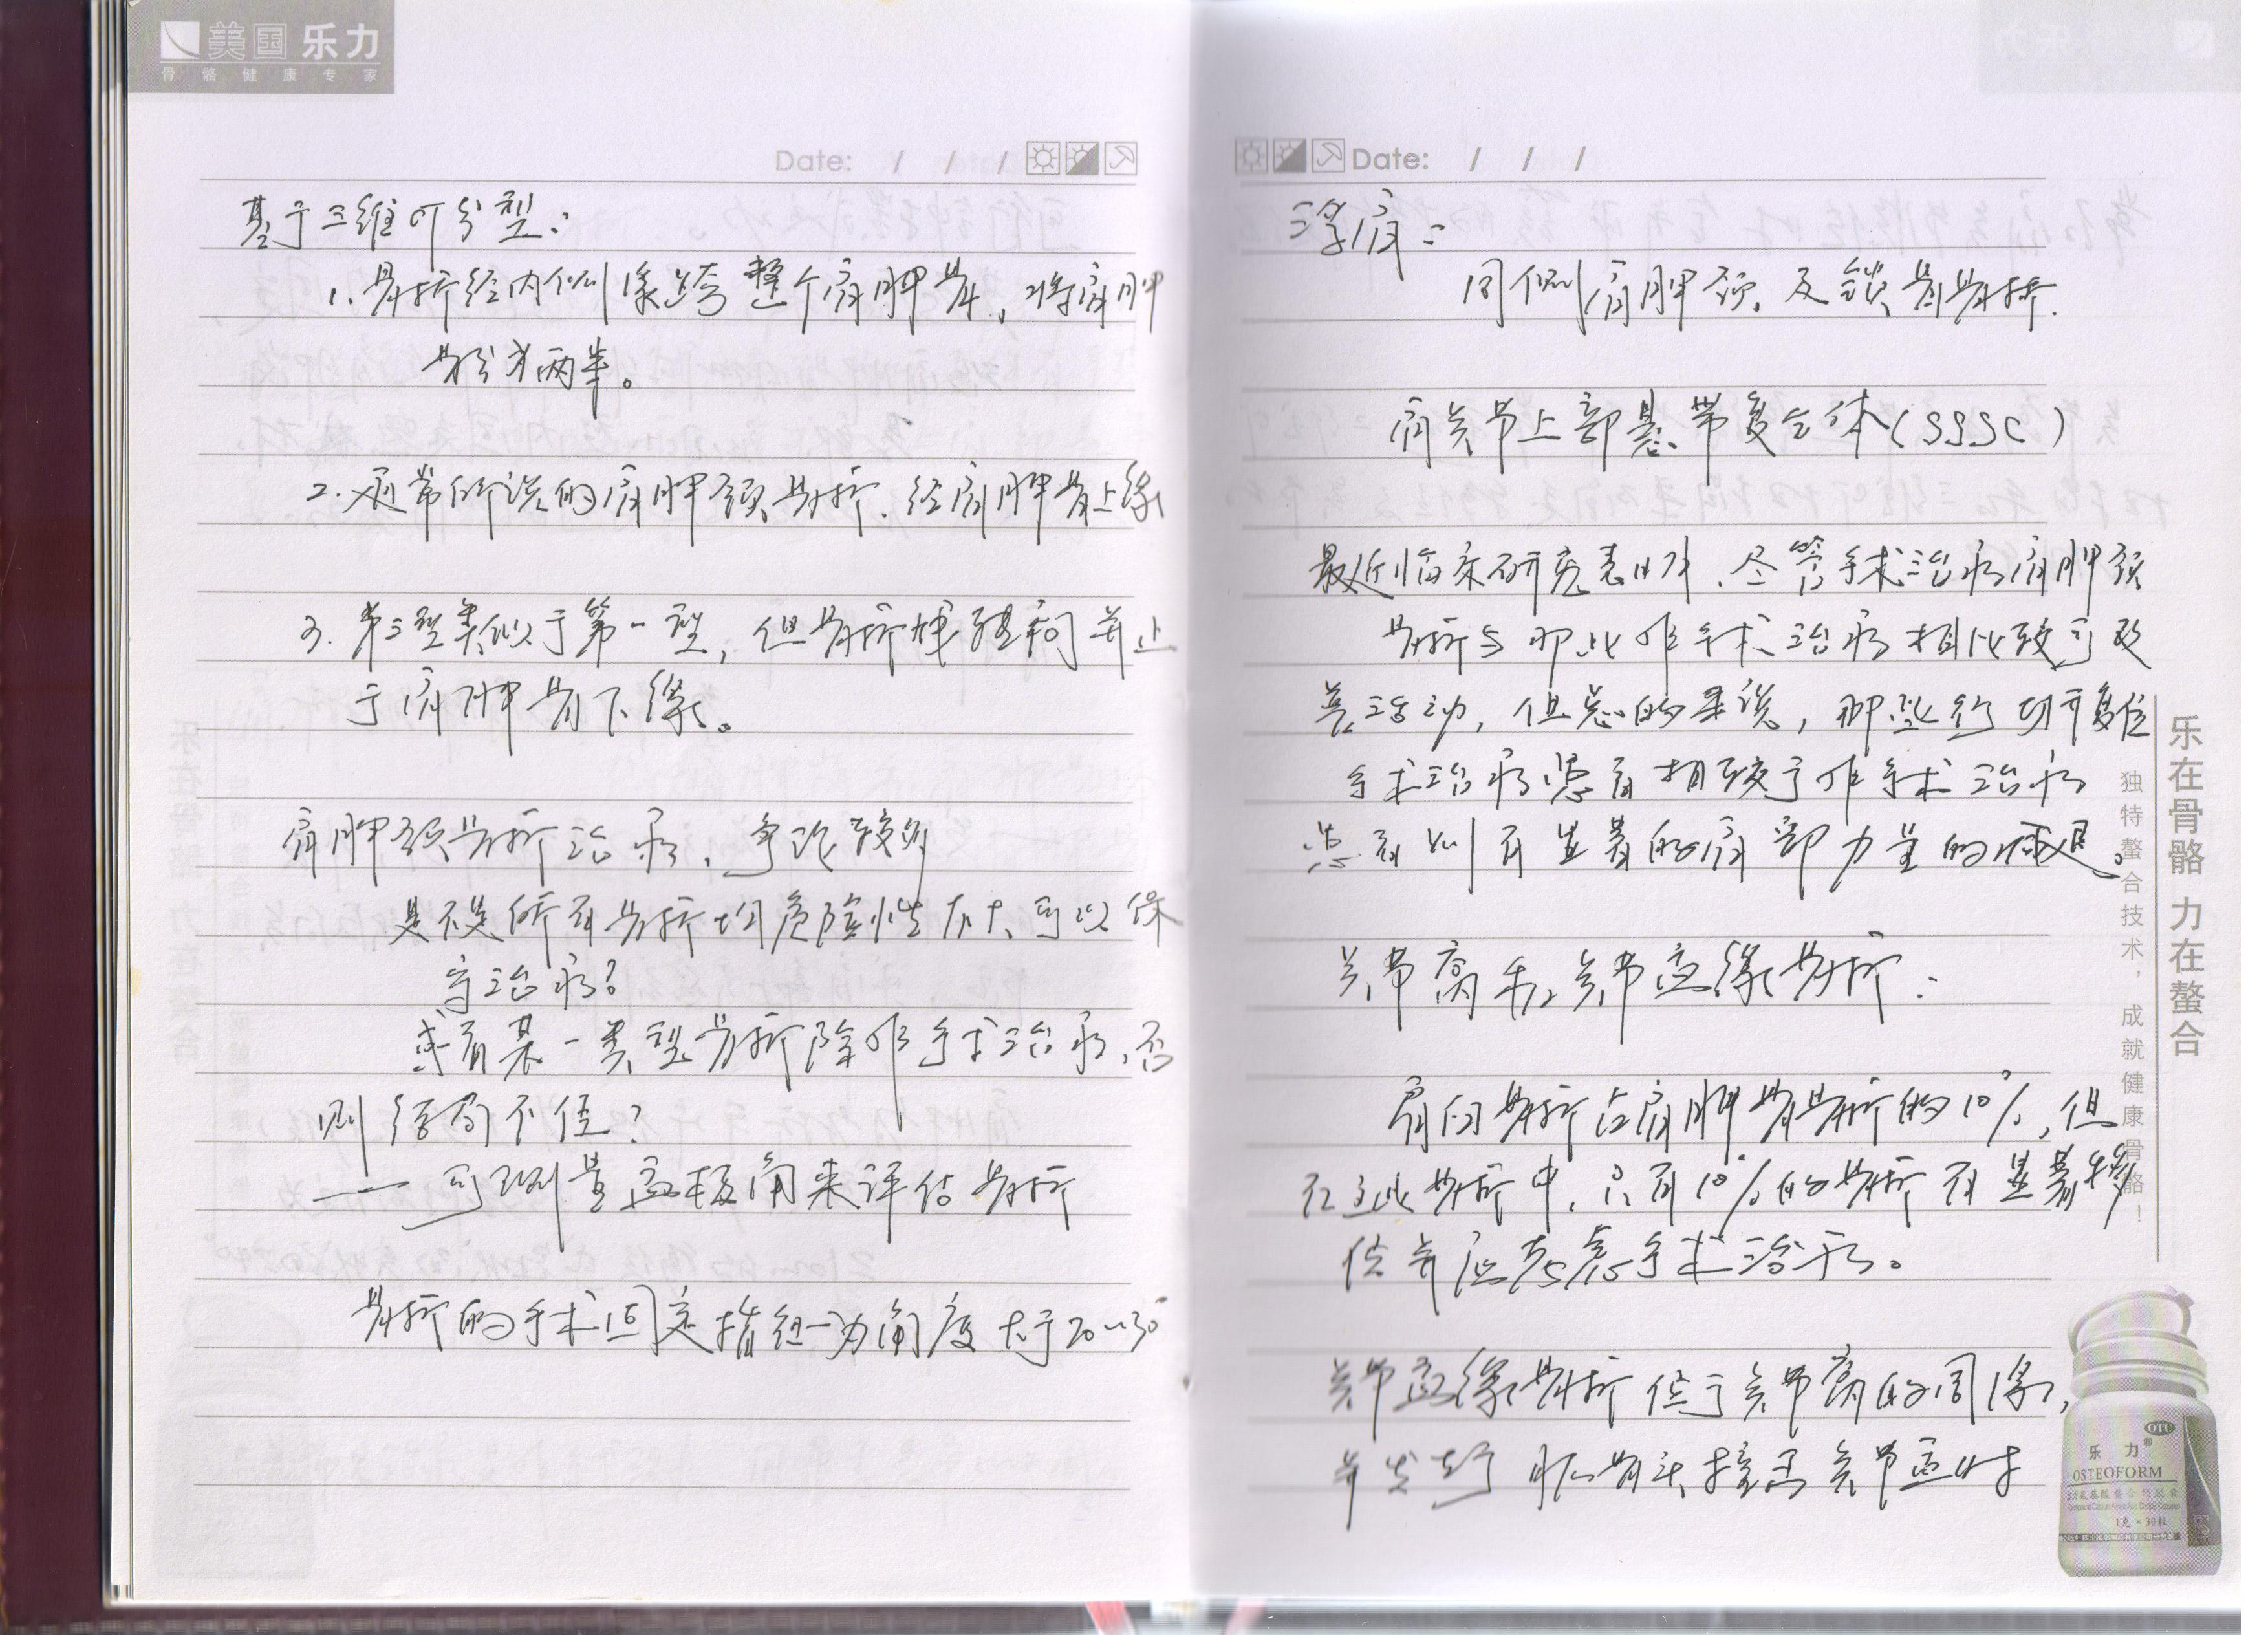 美国 乐力
骨骼健康专家
Date: / / /
基于三维CT分型:
1. 骨折经内侧缘跨整个肩胛骨, 将肩胛
骨分为两半。
2. 通常所说的肩胛颈骨折. 经肩胛骨上缘
3. 第三型类似于第一型, 但骨折 并止
于肩胛骨下缘。
肩胛颈骨折治疗, 争论较多
是不是所有骨折均危险性不大、可以保
守治疗?
或者某一类型骨折除非手术治疗, 否
则结局不佳?
—— 可测量盂极角来评估骨折
骨折的手术固定指征为角度大于20~30°
Date: / / /
浮肩:
同侧肩胛颈及锁骨骨折.
肩关节上部悬带复合体(SSSC)
最近临床研究表明, 尽管手术治疗肩胛颈
骨折与那些非手术治疗相比较可改
善活动, 但总的来说, 那些行切开复位
手术治疗患者相较于非手术治疗
患者则有显著的肩部力量的减退。
关节窝和关节盂缘骨折:
肩臼骨折占肩胛骨骨折的10%, 但
在这些骨折中, 只有10%的骨折有显著移
位并应考虑手术治疗。
关节盂缘骨折位于关节窝的周缘,
并发于肱骨头撞击关节盂时
乐在骨骼 力在螯合
独特螯合技术, 成就健康骨骼!
OTC
乐力®
OSTEOFORM
复方氨基酸螯合钙胶囊
1克×30粒